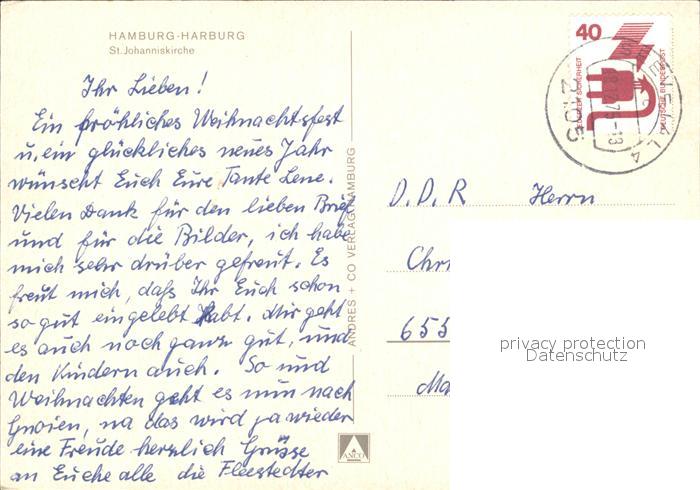 HAMBURG-HARBURG
St. Johanniskirche
Ihr Lieben!
Ein fröhliches Weihnachtsfest
u. ein glückliches neues Jahr
wünscht Euch Eure Tante Lene.
Vielen Dank für den lieben Brief
und für die Bilder, ich habe
mich sehr drüber gefreut. Es
freut mich, daß Ihr Euch schon
so gut eingelebt habt. Mir geht
es auch noch ganz gut, und
den Kindern auch. So und
Weihnachten geht es nun nach
Gnoien, na das wird ja wieder
eine Freude herzlich Grüsse
an Euche alle die Fleestedter
ANDRES + CO VERLAG HAMBURG
ANCO
40
JEDERZEIT SICHERHEIT
DEUTSCHE BUNDESPOST
2105
D.D.R Herrn
Chri
655
Ma
privacy protection
Datenschutz